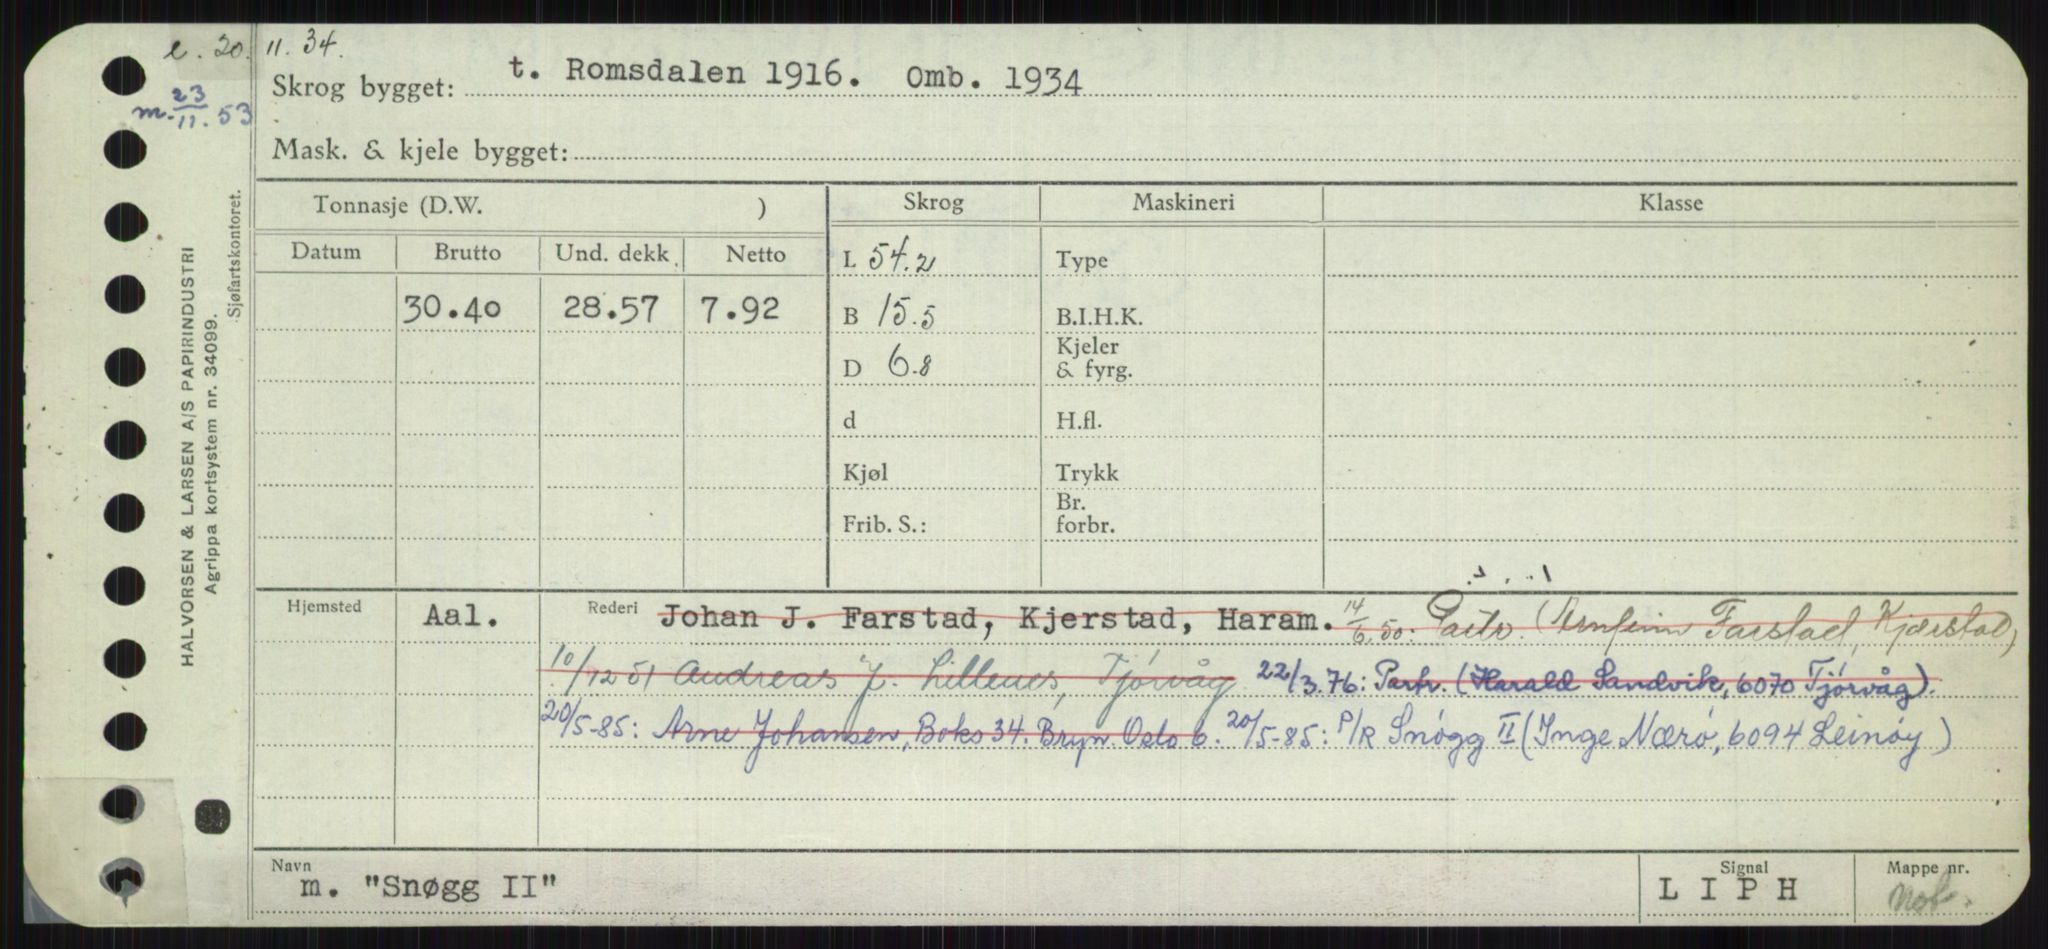 e. 20. 11. 34.
m. 23/11. 53
Skrog bygget: t. Romsdalen 1916. Omb. 1934
Mask. & kjele bygget:
Tonnasje (D.W. ) Skrog Maskineri Klasse
Datum Brutto Und. dekk. Netto L 54.2 Type
30.40 28.57 7.92 B 15.5 B.I.H.K.
D 6.8 Kjeler & fyrg.
d H.fl.
Kjøl Trykk
Frib. S.: Br. forbr.
Hjemsted Aal. Rederi Johan J. Farstad, Kjerstad, Haram. 14/6.50: Partr. (Arnfinn Farstad, Kjerstad)
10/12 51 Andreas J. Lillenes, Tjørvåg 22/3.76: Partr. (Harald Sandvik, 6070 Tjørvåg).
20/5-85: Arne Johansen, Boks 34. Bryn. Oslo 6. 20/5-85: P/R Snøgg II (Inge Nærø, 6094 Leinøy)
Navn m. "Snøgg II" Signal L I P H Mappe nr.
HALVORSEN & LARSEN A/S PAPIRINDUSTRI
Agrippa kortsystem nr. 34099.
Sjøfartskontoret.